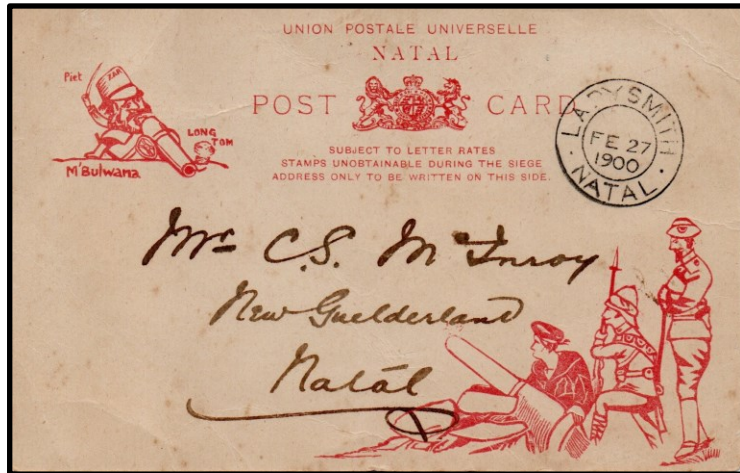 UNION POSTALE UNIVERSELLE
NATAL
POST CARD
SUBJECT TO LETTER RATES
STAMPS UNOBTAINABLE DURING THE SIEGE
ADDRESS ONLY TO BE WRITTEN ON THIS SIDE.
Piet
ZAR
LONG
TOM
M'Bulwana
LADYSMITH
FE 27
1900
NATAL
Mrs C.S. McInroy
New Guelderland
Natal